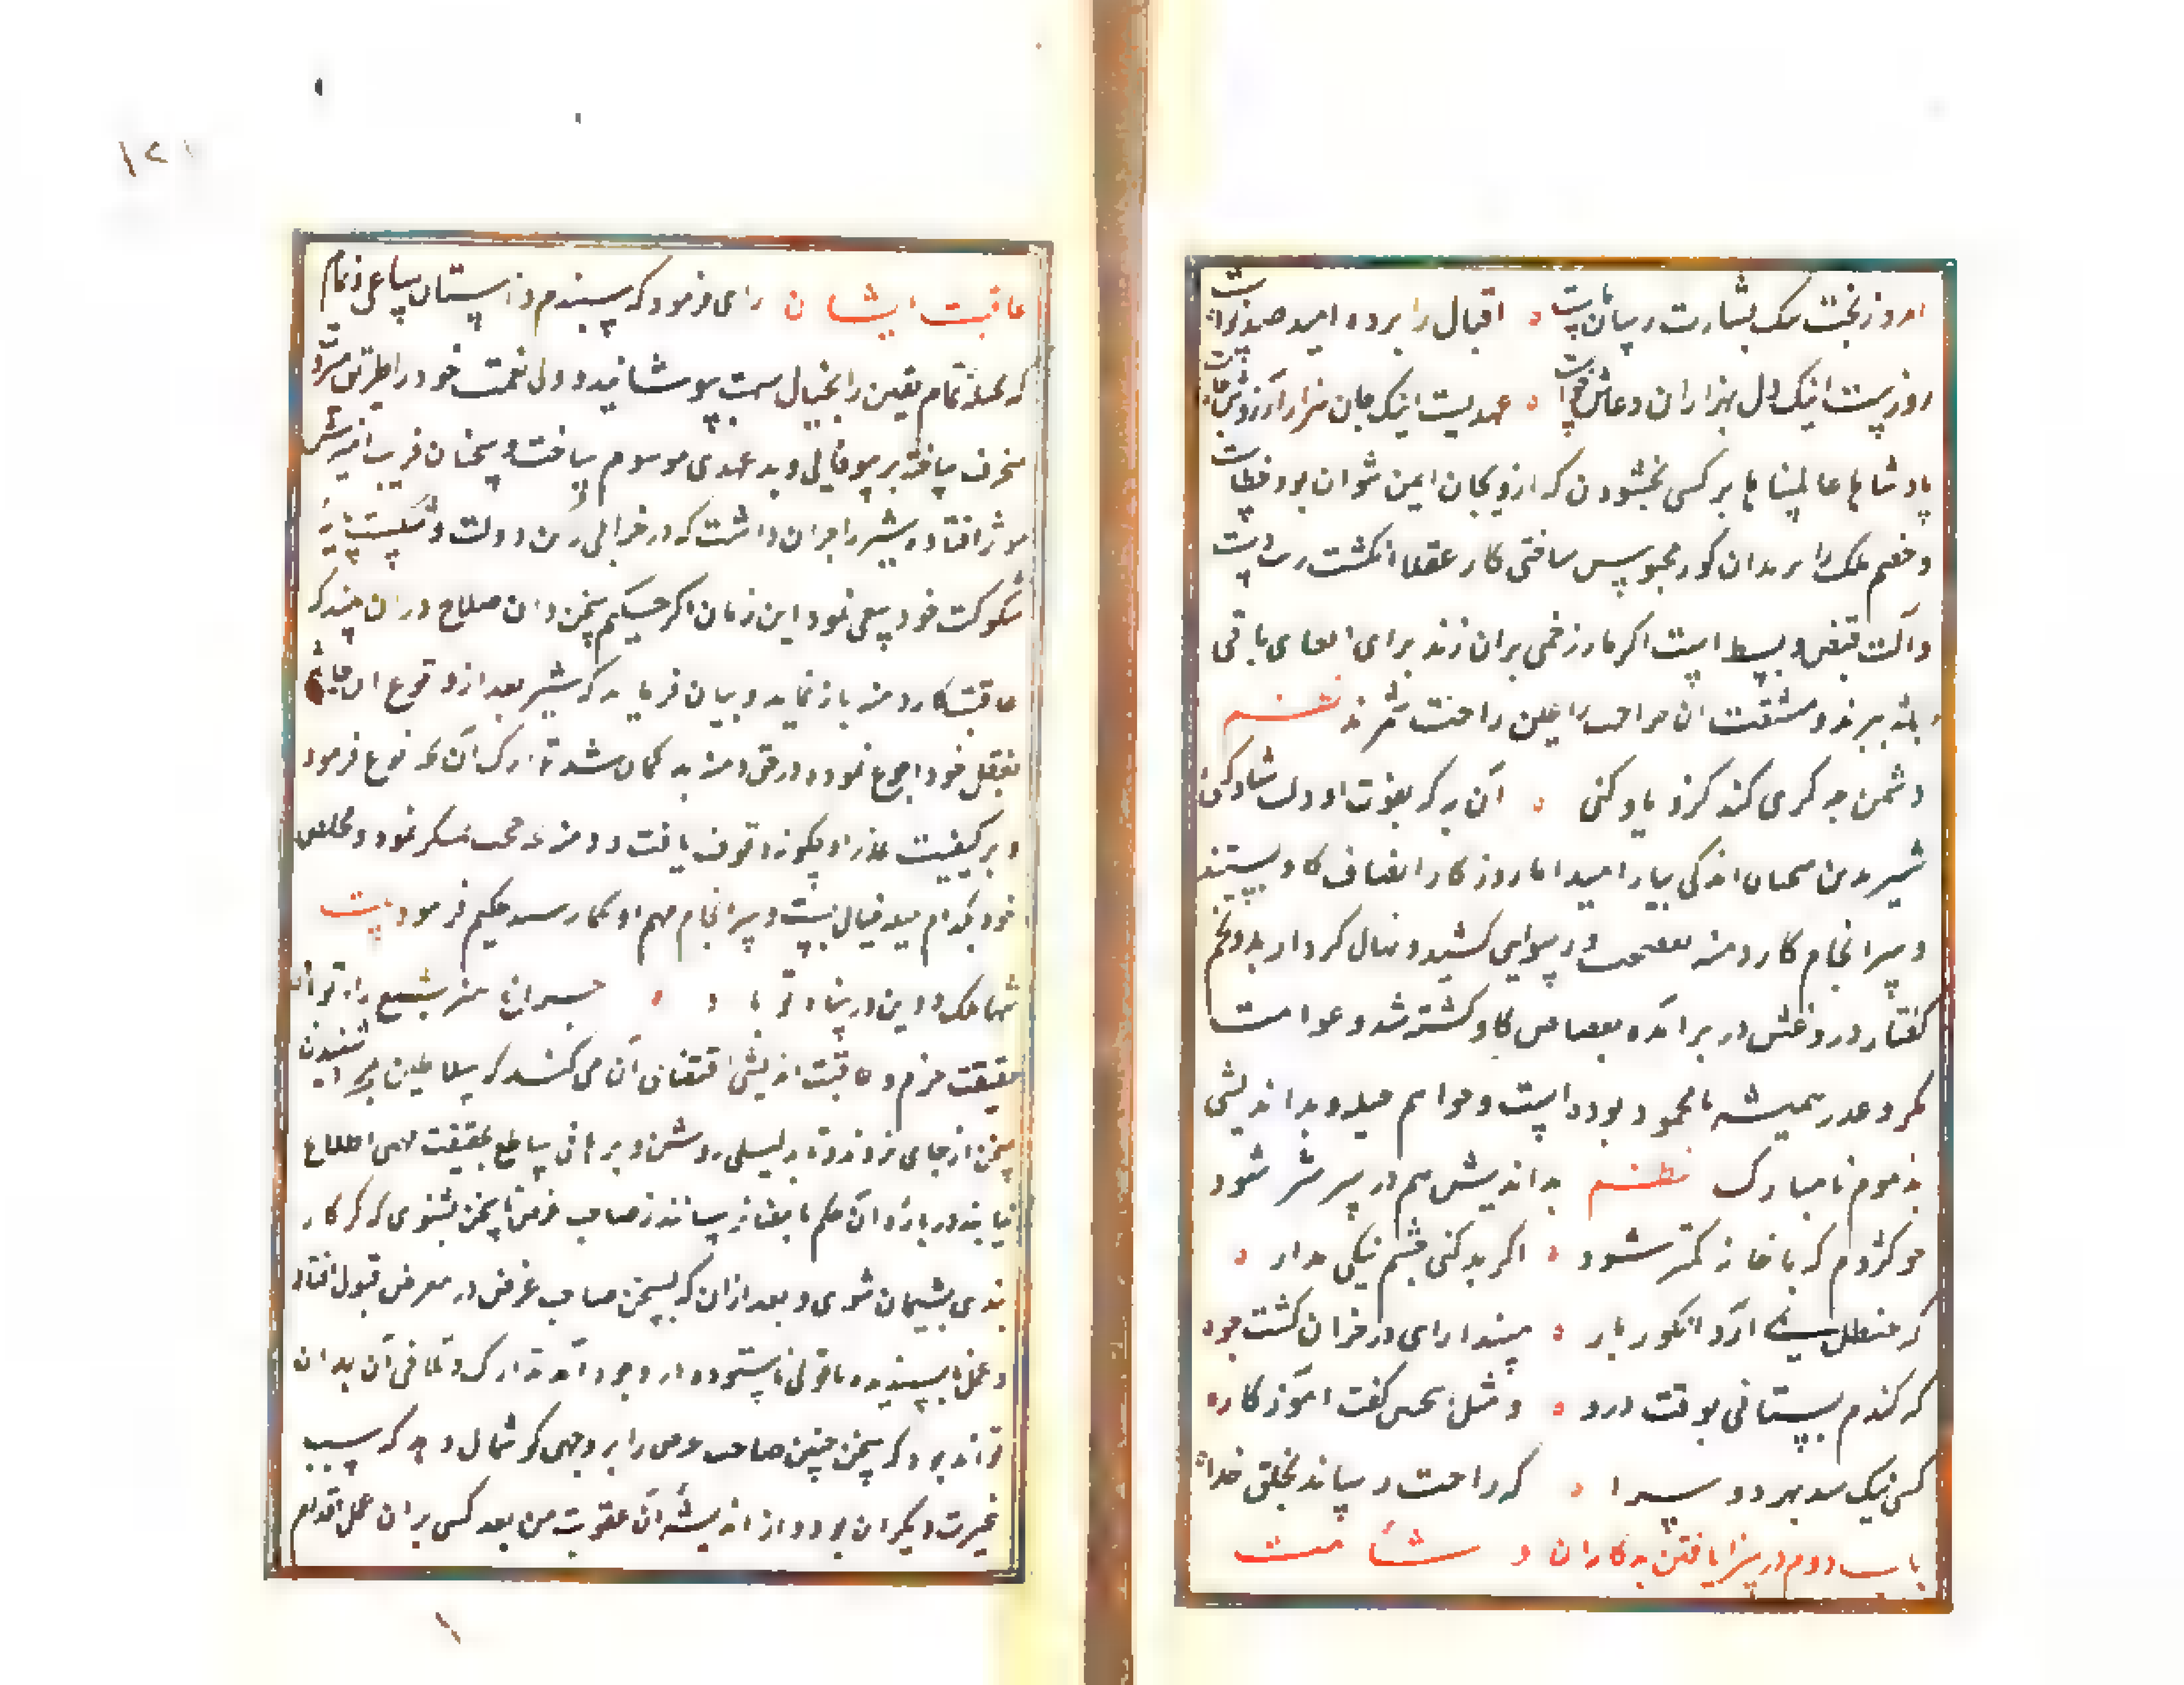 امروز بخت نیک بشارت رسان ماست ه اقبال را برده امید
روزیست اینک دل بهزاران دعاش خواست ه عهدیست اینک جان هزار آرزوش
پادشاها عالمپناها بر کسی بخشودن که ازو بجان ایمن نتوان بود خطاست
و خصم ملک را بزندان کور محبوس ساختن کار عقلا انگشت دست
و آلت قبض و بسط است اگر مار زخمی بران زند برای بقای باقی
ببرند و مشقت ان جراحت را عین راحت شمرند نظم
دشمن چه کری کند کزو یاد کنی ه آن به که بفوت او دلت شاد کنی
شیر اندکی بیارامید اما روزگار انصاف کاو بستد
و سرانجام کار دمنه بفضیحت و رسوایی کشید و نهال کردار بد و تخم
گفتار دروغش در بر آمده بقصاص گاو کشته شد و عواقب
مکر و غدر همیشه نامحمود بوده است و خواتم حیله و بداندیشی
مذموم نامبارک نظم بداندیش هم در سر شر شود
چو کژدم که با خانه کمتر شود ه اگر بد کنی چشم نیکی مدار ه
که حنظل نمی آرد انگور بار ه مپندار ای در خزان کشت جو
که گندم ستانی بوقت درو ه و مثل گفت آموزگار ه
کسی نیک بیند بهر دو سرا ه که راحت رساند بخلق خدا
باب دوم در سزا یافتن بدکاران و شآمت
۱۲۱
عاقبت ایشان رای فرمود که شنیدم داستان ساعی و نمام
که بحیله تمام یقین را بخیال شبهت بپوشانید و ولی نعمت خود را از طریق مروت
منحرف ساخته بر بیوفایی و بدعهدی موسوم ساخت و سخنان فریب آمیزش
موثر افتاده شیر را بران داشت که در خرابی رکن دولت و شکست پایه
شوکت خود سعی نمود این زمان اگر حکیم سخن دان صلاح دران بیند که
عاقبت کار دمنه باز نماید و بیان فرماید که شیر بعد از وقوع ان حادثه
بعقل خود رجوع نموده در حق دمنه بد گمان شد تدارک آن بچه نوع فرمود
و بر کیفیت غدر او چگونه وقوف یافت و دمنه بچه حجت تمسک نمود و مخلص
خود بکدام حیله خیال بست و سرانجام مهم او بکجا رسید حکیم فرمود بیت
شها ملک و دین در پناه تو باد ه ه چراغ هنر شمع راه تو باد
حقیقت حزم و عاقبت اندیشی اقتضای آن می کند که سلاطین بمجرد شنیدن
سخن از جای نروند و تا بدلیلی روشن و برهانی ساطع بحقیقت مهمی اطلاع
نیابند در باره آن حکم بامضا نرسانند ز صاحب غرض تا سخن نشنوی که گر کار
بندی پشیمان شوی و بعد ازان که سخن صاحب غرض در معرض قبول افتاد
و عمل ناپسندیده یا قولی ناستوده در وجود آمد تدارک و تلافی آن بدان
تواند بود که سخن چین صاحب غرض را بر وجهی گوشمال دهد که سبب
عبرت دیگران بود و از اندیشه آن عقوبت من بعد کسی بران عمل اقدام